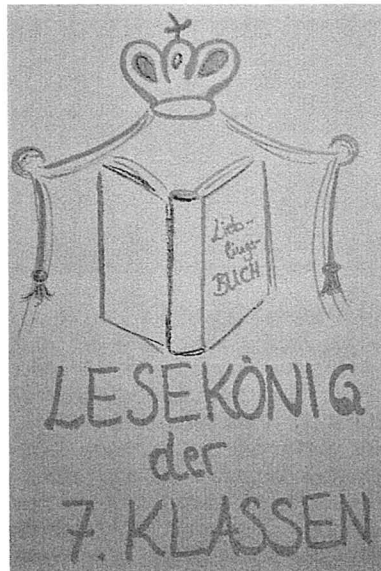 Lieb-
lings
BUCH
LESEKÖNIG
der
7. KLASSEN